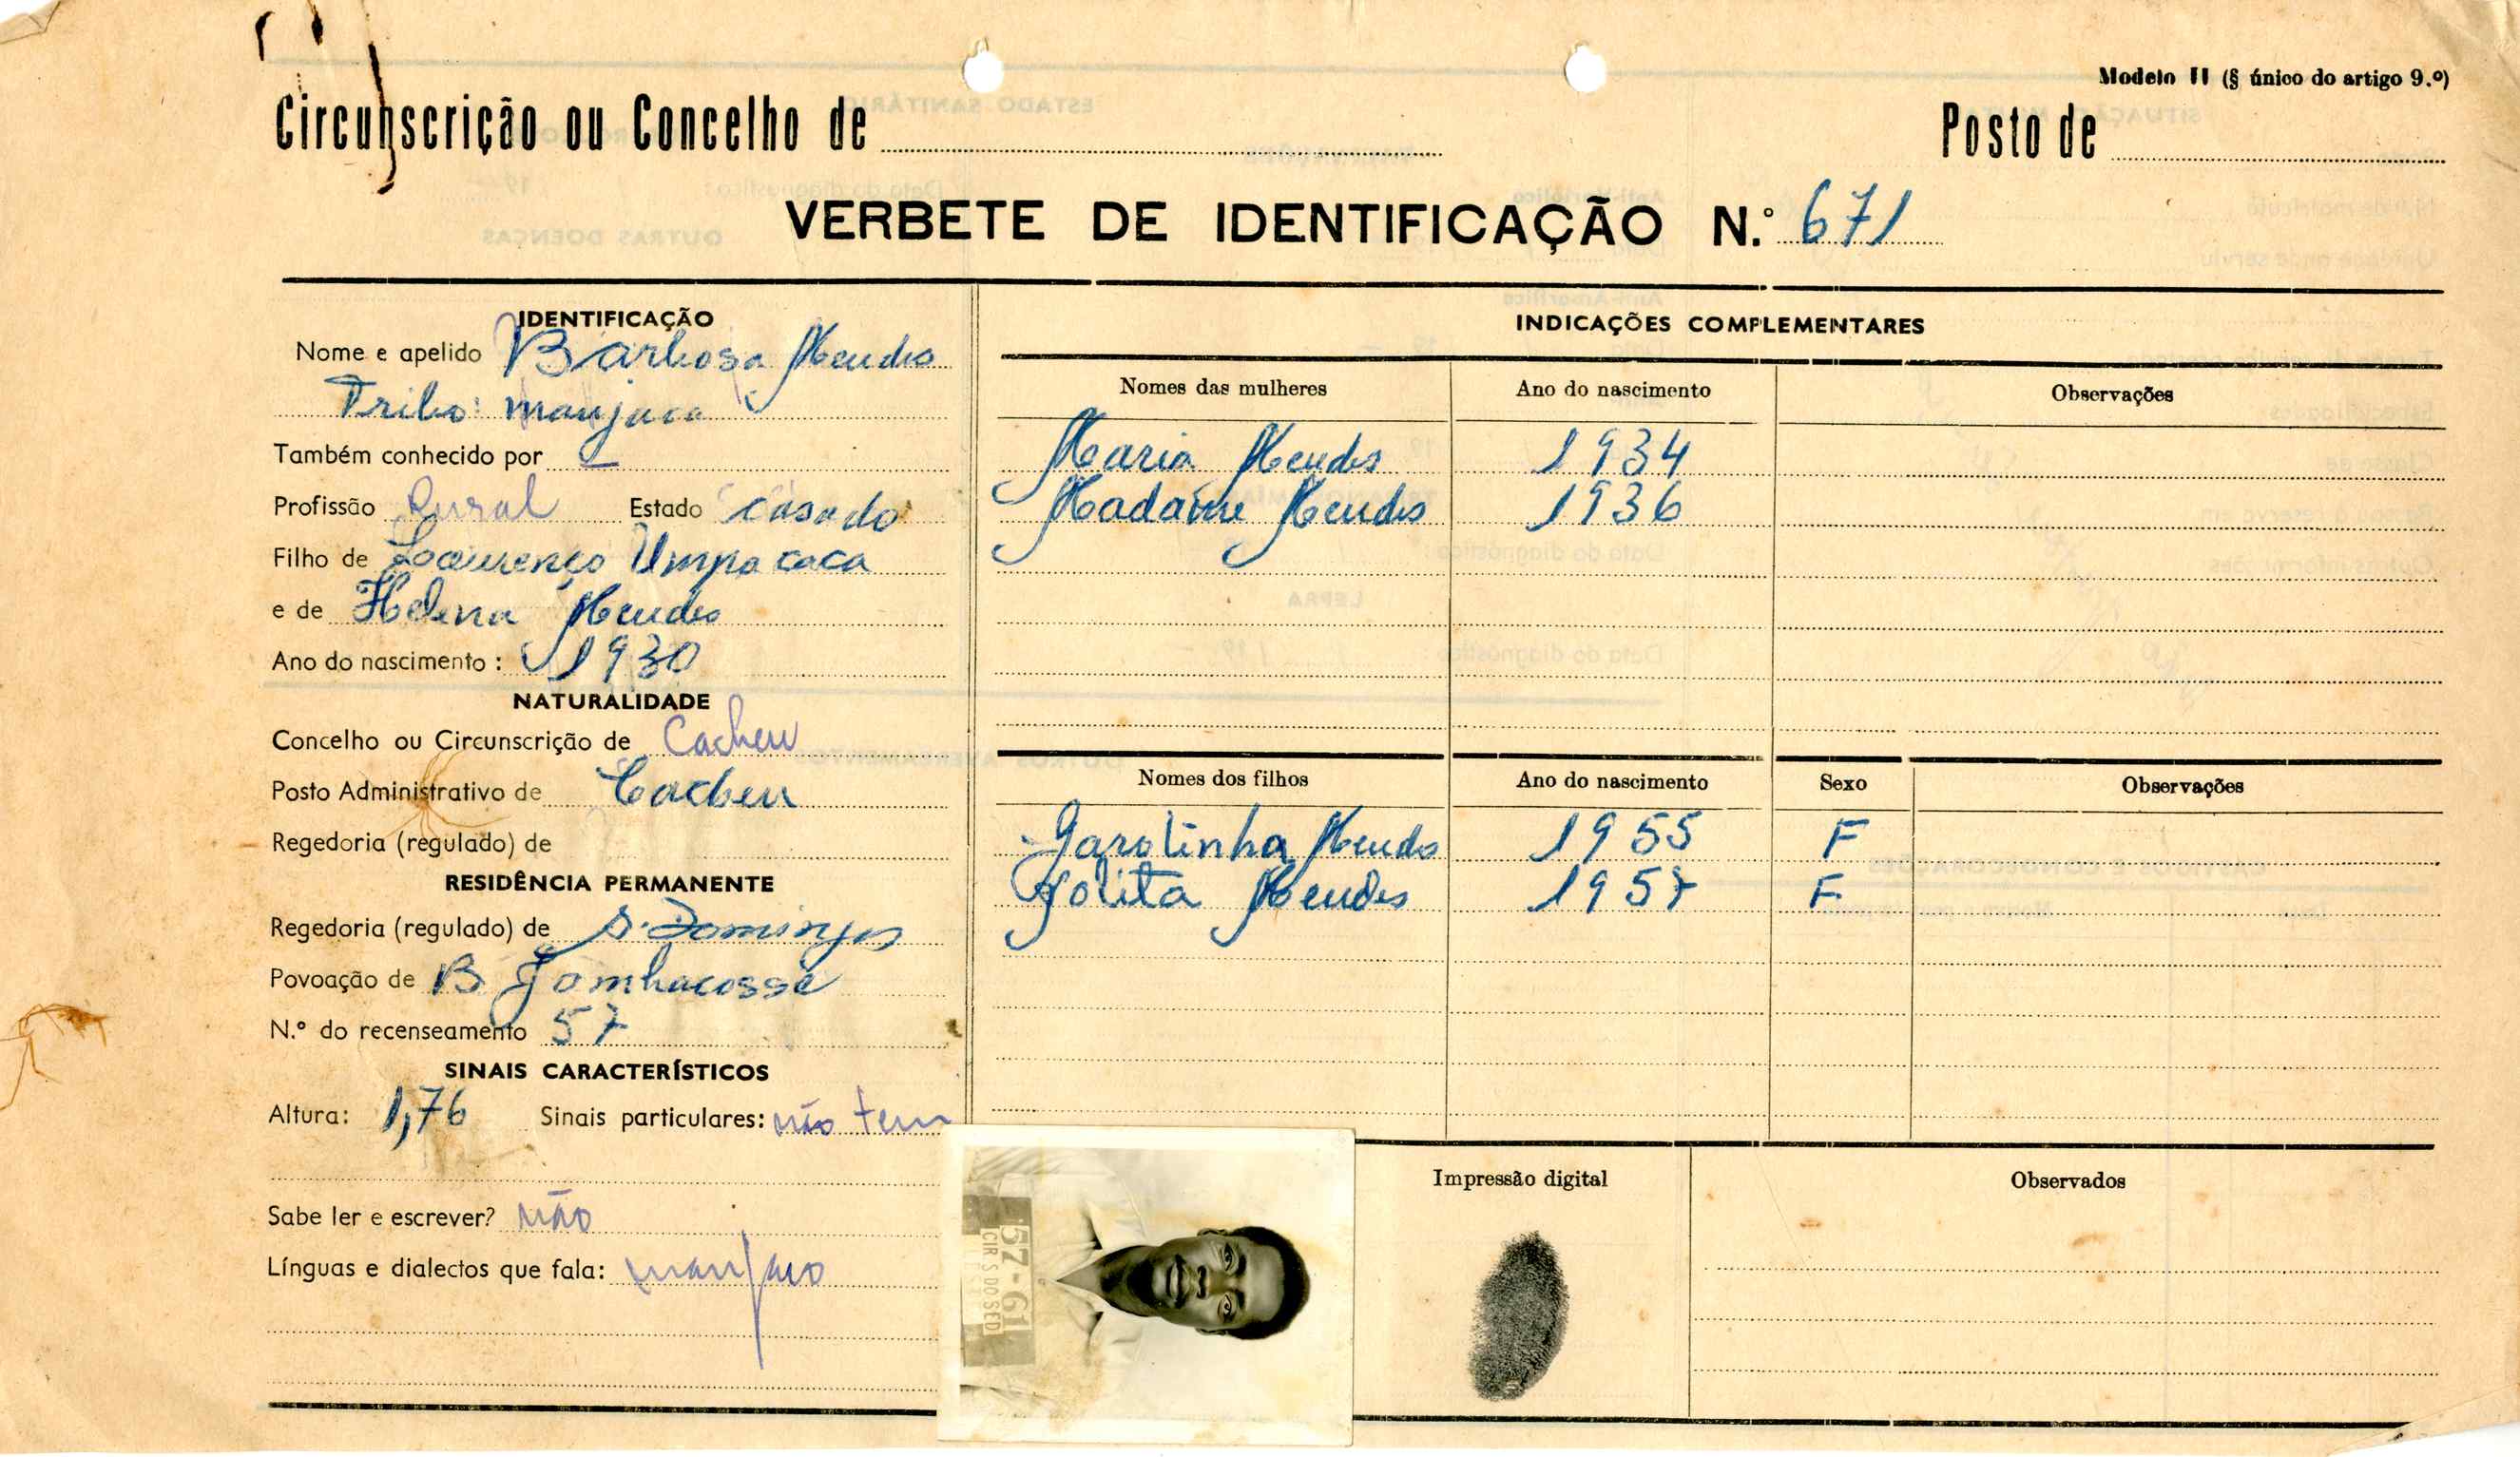 Modelo II (§ único do artigo 9.º)
Circunscrição ou Concelho de
Posto de
VERBETE DE IDENTIFICAÇÃO N.º 671
IDENTIFICAÇÃO
Nome e apelido Barbosa Mendes
Tribo: manjaca
Também conhecido por —
Profissão Rural Estado casado
Filho de Lourenço Umpacaca
e de Helena Mendes
Ano do nascimento : 1930
NATURALIDADE
Concelho ou Circunscrição de Cacheu
Posto Administrativo de Cacheu
Regedoria (regulado) de
RESIDÊNCIA PERMANENTE
Regedoria (regulado) de S. Domingos
Povoação de B
N.º do recenseamento 57
SINAIS CARACTERÍSTICOS
Altura: 1,76 Sinais particulares: não tem
Sabe ler e escrever? não
Línguas e dialectos que fala: manjaco
INDICAÇÕES COMPLEMENTARES
Nomes das mulheres Ano do nascimento Observações
Maria Mendes 1934
Madame Mendes 1936
Nomes dos filhos Ano do nascimento Sexo Observações
Garotinha Mendes 1955 F
Jolita Mendes 1957 F
57-61
CIR S DOS ED
Impressão digital
Observados